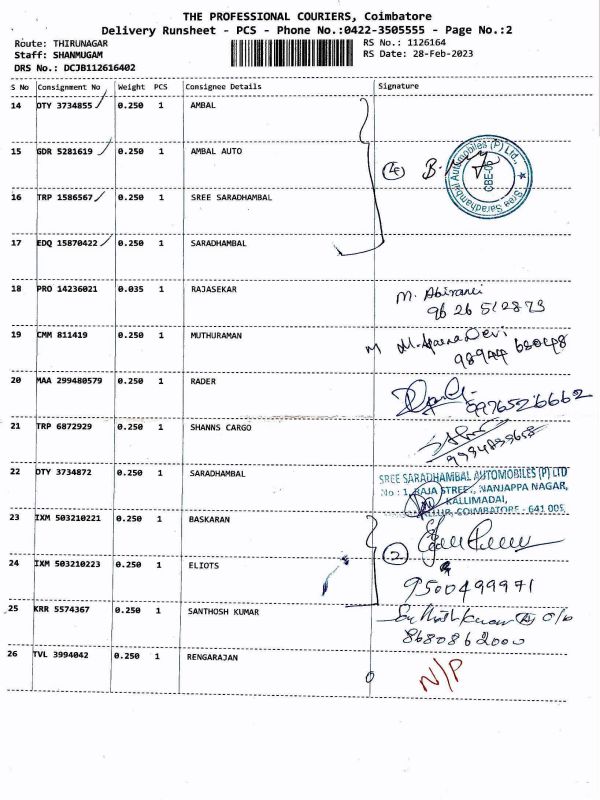 THE PROFESSIONAL COURIERS, Coimbatore
Delivery Runsheet - PCS - Phone No.:0422-3505555 - Page No.:2
Route: THIRUNAGAR
RS No.: 1126164
Staff: SHANMUGAM
RS Date: 28-Feb-2023
DRS No.: DCJB112616402
S No Consignment No Weight PCS Consignee Details Signature
14 DTY 3734855 0.250 1 AMBAL
15 GDR 5281619 0.250 1 AMBAL AUTO
Sree Saradhambal Automobiles (P) Ltd.,
CBE-05
16 TRP 1586567 0.250 1 SREE SARADHAMBAL
17 EDQ 15870422 0.250 1 SARADHAMBAL
18 PRO 14236021 0.035 1 RAJASEKAR
M. Abirami
96 26 512873
19 CMM 811419 0.250 1 MUTHURAMAN
Devi
98944 68048
20 MAA 299480579 0.250 1 RADER
9976526662
21 TRP 6872929 0.250 1 SHANNS CARGO
22 DTY 3734872 0.250 1 SARADHAMBAL
SREE SARADHAMBAL AUTOMOBILES (P) LTD
No : 1, RAJA STREET, NANJAPPA NAGAR,
KALLIMADAI,
COIMBATORE - 641 005.
23 IXM 503210221 0.250 1 BASKARAN
2
24 IXM 503210223 0.250 1 ELIOTS
9500499971
25 KRR 5574367 0.250 1 SANTHOSH KUMAR
8680862000
26 TVL 3994042 0.250 1 RENGARAJAN
N/P